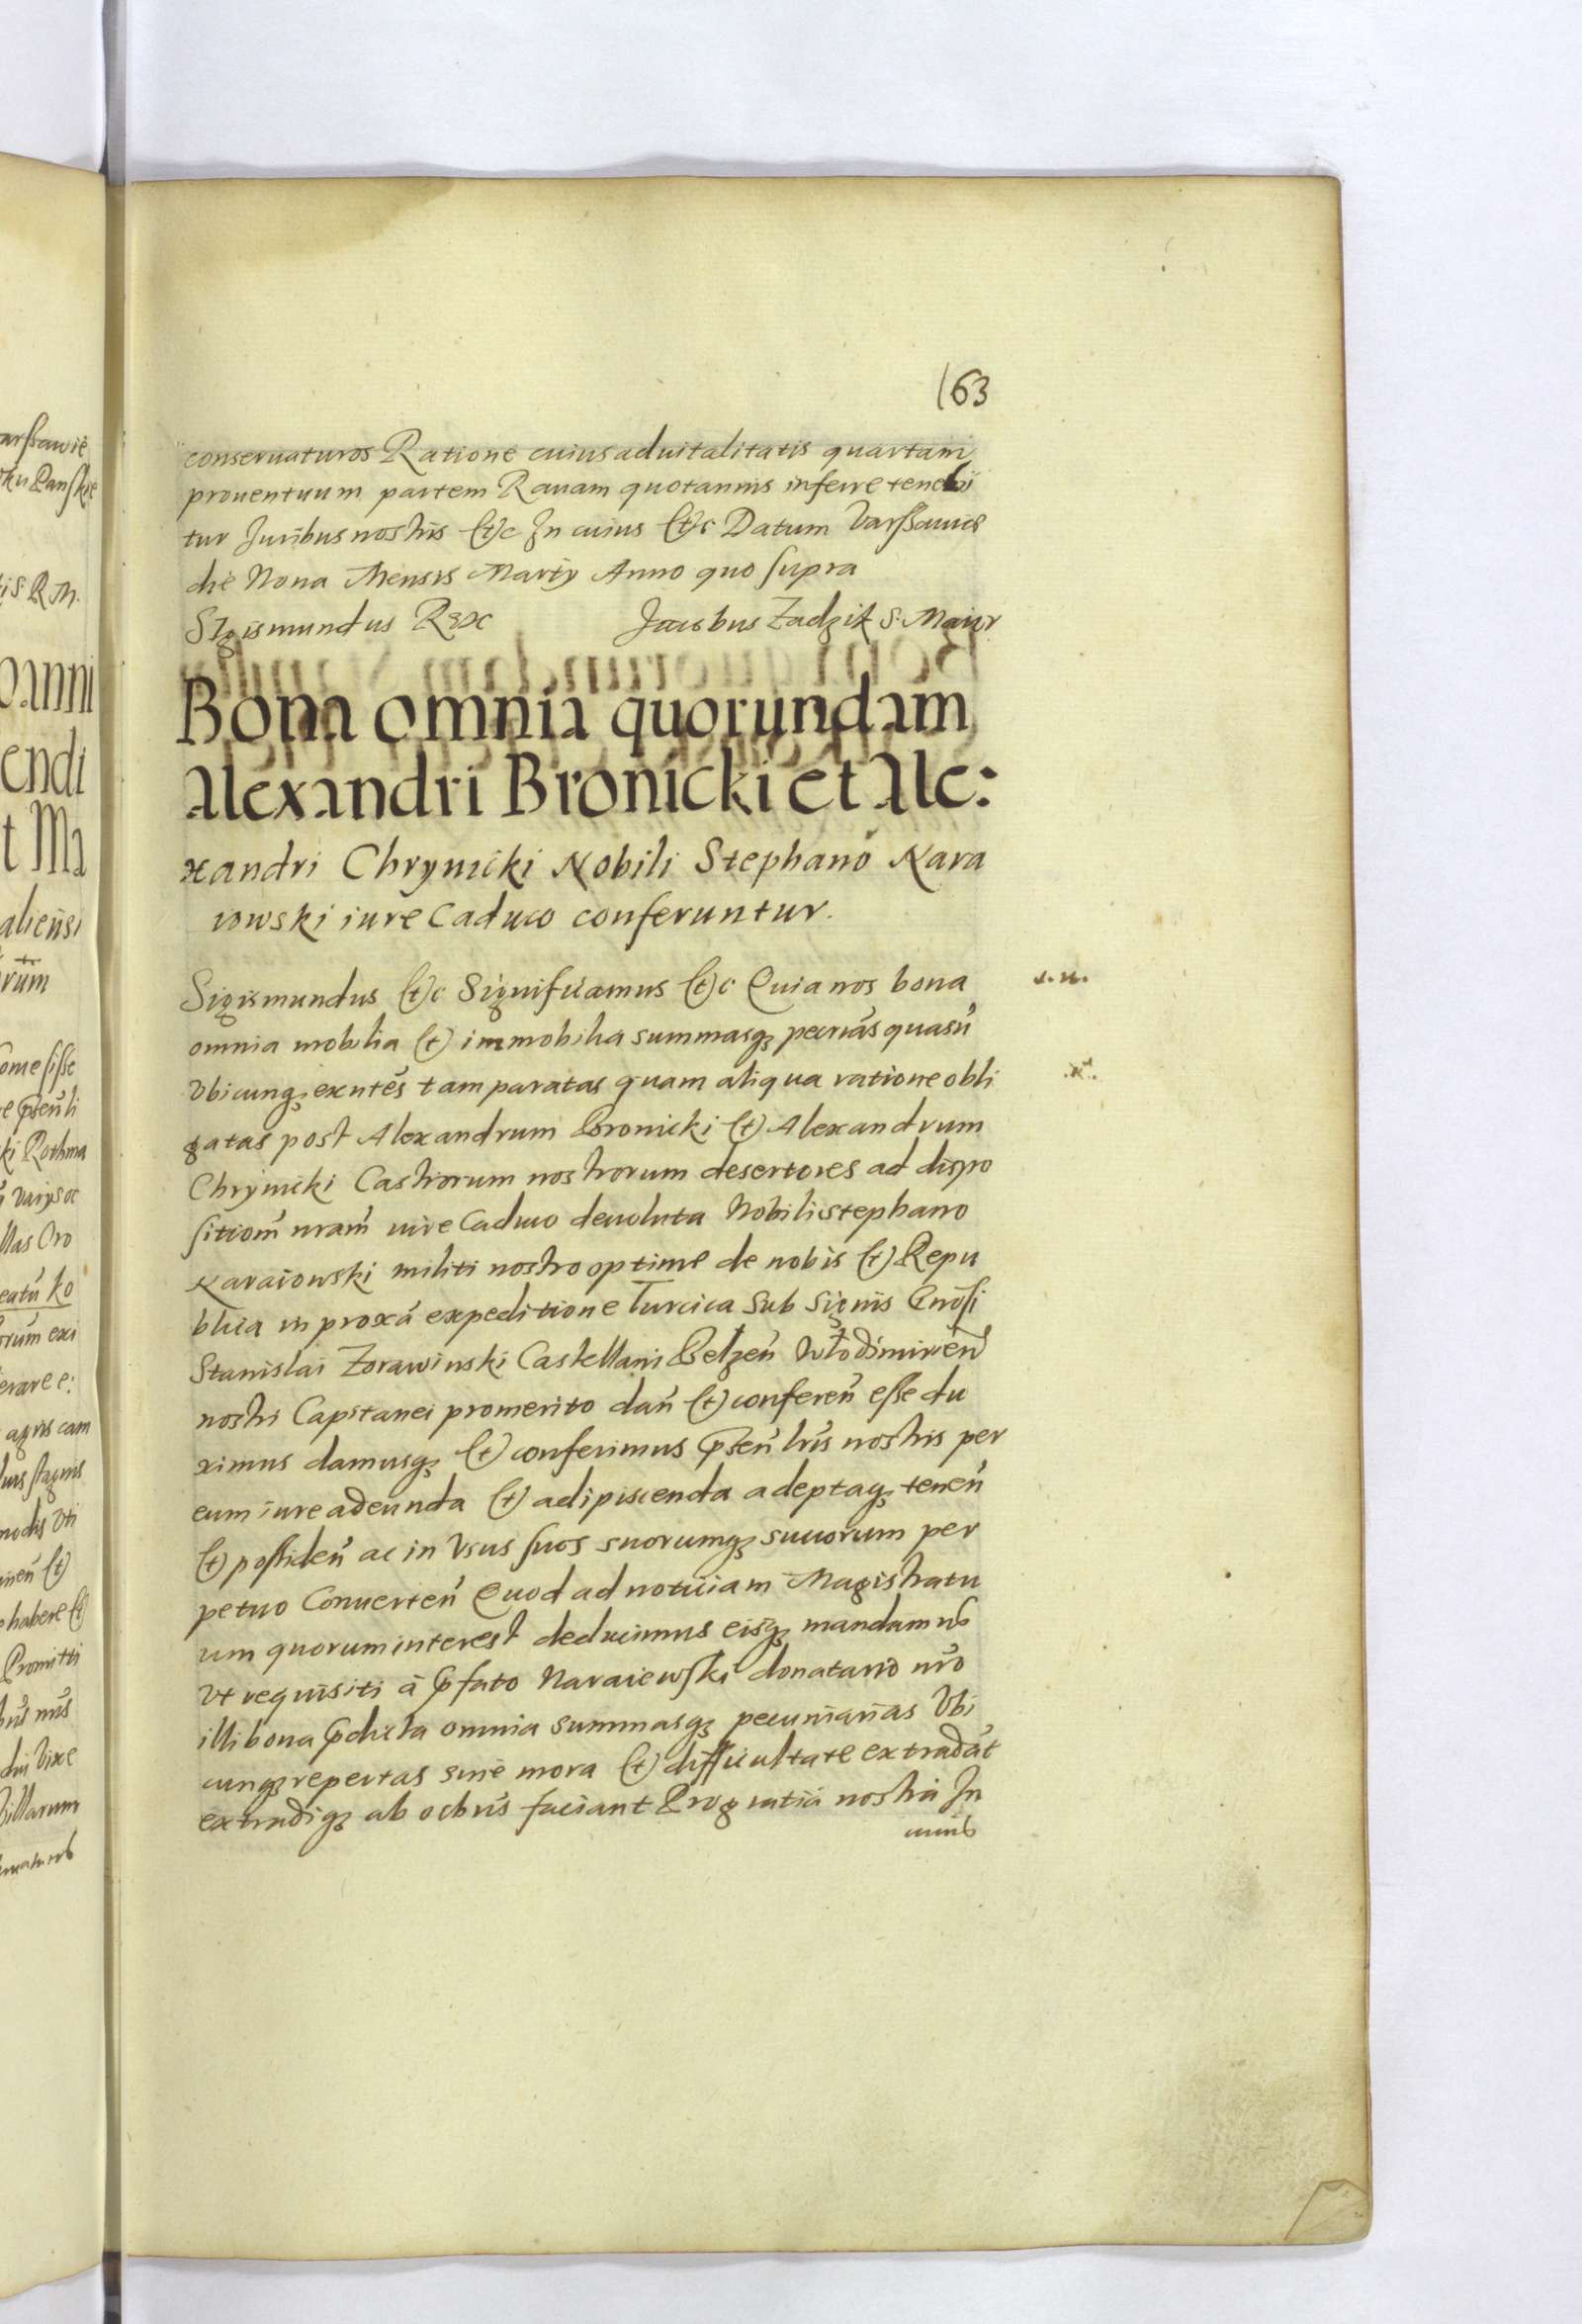 163
conseruaturos Ratione cuius aduitalitatis quartam
prouentuum partem Rauam quotannis inferre tenebi
tur Juribus nostris (et)c In cuius (et)c Datum Varssauie
die Nona Mensis Martÿ Anno quo supra
Sigismundus Rex Jacobus Zadzik S: Maior
Bona omnia quorundam
Alexandri Bronicki et Ale:
xandri Chrynicki Nobili Stephano Nara
iowski iure Caduco conferuntur.
Sigismundus (et)c Significamus (et)c Quia nos bona
omnia mobilia (et) immobilia summasq3 pecrias quasu̇
Vbicunq3 exntes tam paratas quam aliqua ratione obli
gatas post Alexandrum Bronicki (et) Alexandrum
Chrynicki Castrorum nostrorum desertores ad dispo
sitiom̃ nram̃ iure Caduco deuoluta Nobili Stephano
Naraiowski militi nostro optime de nobis (et) Repu
blica in proxã expeditione Turcica Sub Signis Gnosi
Stanislai Zorawinski Castellani Belzen̄ Włodimirien̄
nostri Capitanei promerito dan̄ (et) conferen̄ esse du
ximus damusq3 (et) conferimus pñten̄ lris nostris per
eum iure adeunda (et) adipiscenda adeptaq3 tenen̄
(et) possiden̄ ac in Vsus suos suorumq3 suuorum per
petuo Conuerten̄ Quod ad notitiam Magistratu
um quorum interest deducimus eisq3 mandamus
Vt requisiti à p̃fato Naraiewski donatario nr̃o
illi bona p̃dicta omnia summasq3 pecuniarias Vbi
cunq3 repertas sine mora (et) difficultate extradãt
extradiq3 ab oibus faciant Pro gratia nostra In
cuius